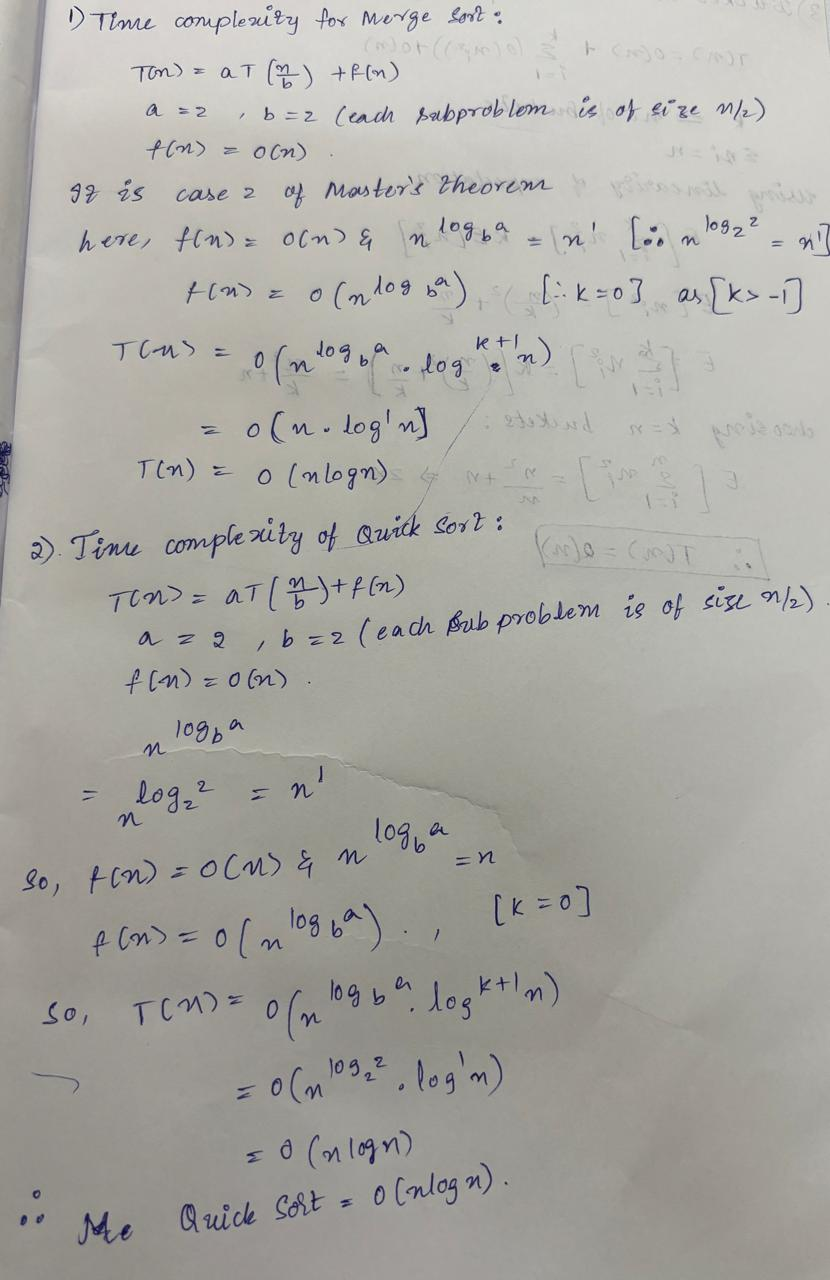 1) Time complexity for Merge Sort :
T(n) = aT(n/b) + f(n)
a = 2 , b = 2 (each subproblem is of size n/2)
f(n) = O(n) .
It is case 2 of Master's theorem
here, f(n) = O(n) & n^log_b a = n^1 [∴ n^log_2 2 = n^1]
f(n) = O(n^log_b a) [∴ k=0] as [k > -1]
T(n) = O(n^log_b a . log^k+1 n)
= O(n . log^1 n]
T(n) = O(nlogn)
2). Time complexity of Quick Sort :
T(n) = aT(n/b) + f(n)
a = 2 , b = 2 (each Sub problem is of size n/2) .
f(n) = O(n) .
n^log_b a
= n^log_2 2 = n^1
So, f(n) = O(n) & n^log_b a = n
f(n) = O(n^log_b a) . , [k = 0]
So, T(n) = O(n^log_b a . log^k+1 n)
= O(n^log_2 2 . log^1 n)
= O(nlogn)
∴ Quick Sort = O(nlogn) .